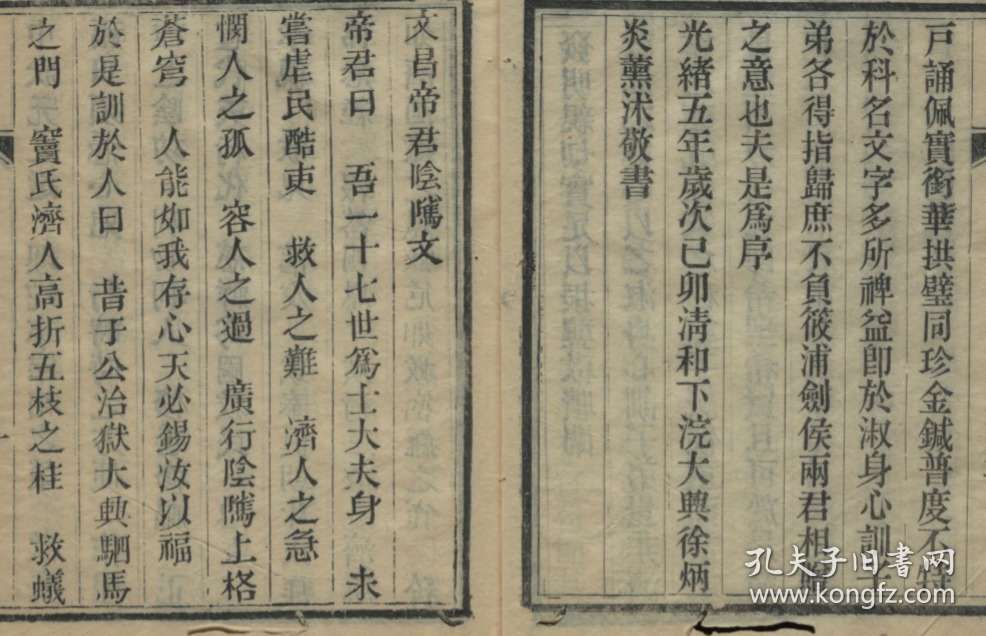 戸誦佩實銜華拱璧同珍金鍼普度不特
於科名文字多所裨益卽於淑身心訓子
弟各得指歸庶不負筱浦劍侯兩君相
之意也夫是爲序
光緒五年歲次己卯淸和下浣大興徐炳
炎薰沭敬書
文昌帝君陰騭文
帝君曰 吾一十七世爲士大夫身 未
嘗虐民酷吏 救人之難 濟人之急
憫人之孤 容人之過 廣行陰騭上格
蒼穹 人能如我存心天必錫汝以福
於是訓於人曰 昔于公治獄大興駟馬
之門 竇氏濟人高折五枝之桂 救蟻
孔夫子旧书网
kongfz.com